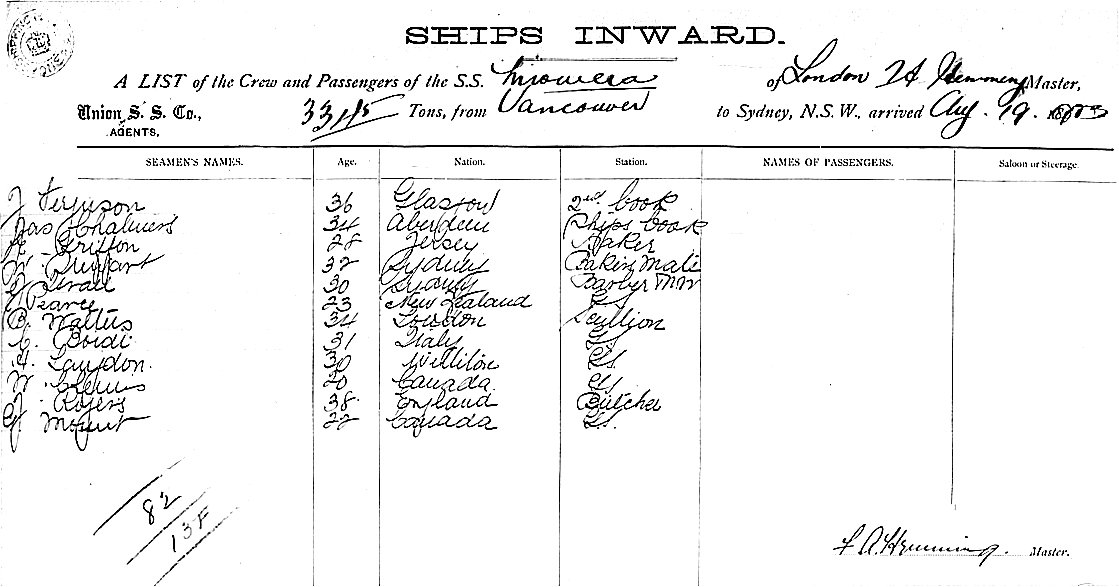 SHIPS INWARD.
A LIST of the Crew and Passengers of the S.S. Miowera of London F A Hemming Master,
Union S. S. Co., AGENTS, 3345 Tons, from Vancouver to Sydney, N.S.W., arrived Aug. 19.
SEAMEN'S NAMES. Age. Nation. Station. NAMES OF PASSENGERS. Saloon or Steerage.
J Ferguson 36 Glasgow 2nd Cook
Jas Chalmers 34 Aberdeen Ships Cook
Griffon 28 Jersey Baker
W. 32 Sydney Bakers Mate
30 Sydney Barber
Pearce 23 New Zealand GS
Walters 34 London Scullion
31 Italy GS
H. Langdon. 30 GS.
W. 20 Canada GS
J. Rogers 38 England Butcher
G. Mount 22 Canada GS.
82
13F
F A Hemming. Master.